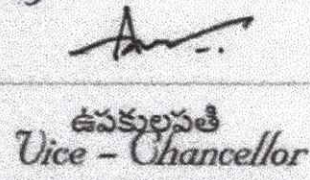 ఉపకులపతి
Vice - Chancellor